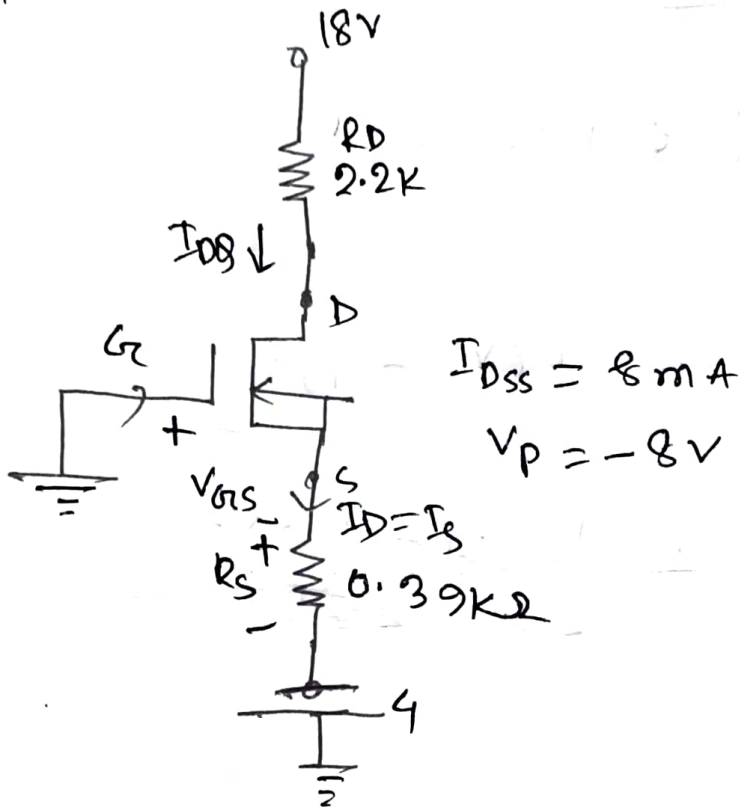 18V
RD
2.2K
IDQ ↓
D
G
IDSS = 8mA
+
VP = -8V
VGS
S
-
ID=IS
+
RS
0.39KΩ
-
4